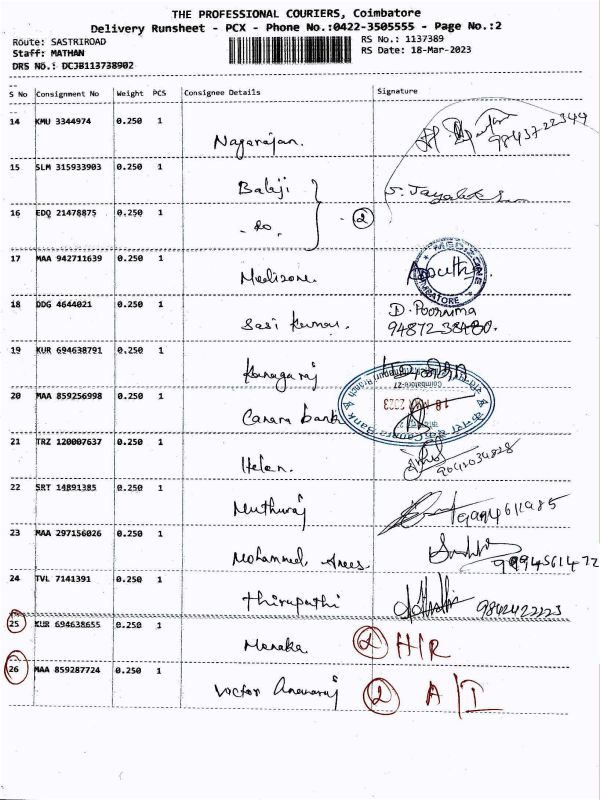 THE PROFESSIONAL COURIERS, Coimbatore
Delivery Runsheet - PCX - Phone No.:0422-3505555 - Page No.:2
Route: SASTRIROAD
RS No.: 1137389
Staff: MATHAN
RS Date: 18-Mar-2023
DRS No.: DCJB113738902
S No Consignment No Weight PCS Consignee Details Signature
14 KMU 3344974 0.250 1
Nagarajan. 9843722344
15 SLM 315933903 0.250 1
Balaji S. Jayalak
16 EDQ 21478875 0.250 1
- do. - 2
17 MAA 942711639 0.250 1
Medizone. MEDIZONE COIMBATORE
18 DDG 4644021 0.250 1
Sasi Kumar. D. Poornima
9487238480.
19 KUR 694638791 0.250 1
Kanagaraj
20 MAA 859256998 0.250 1
Canara bank Canara Bank Coimbatore-27 2023
21 TRZ 120007637 0.250 1
Helen.
22 SRT 14891385 0.250 1
Muthuraj 9994611985
23 MAA 297156026 0.250 1
Mohammed Anees 9994561472
24 TVL 7141391 0.250 1
Thirupathi 9842422223
25 KUR 694638655 0.250 1
Menaka 2 H/R
26 MAA 859287724 0.250 1
Voctor Anavaraj 2 A/I